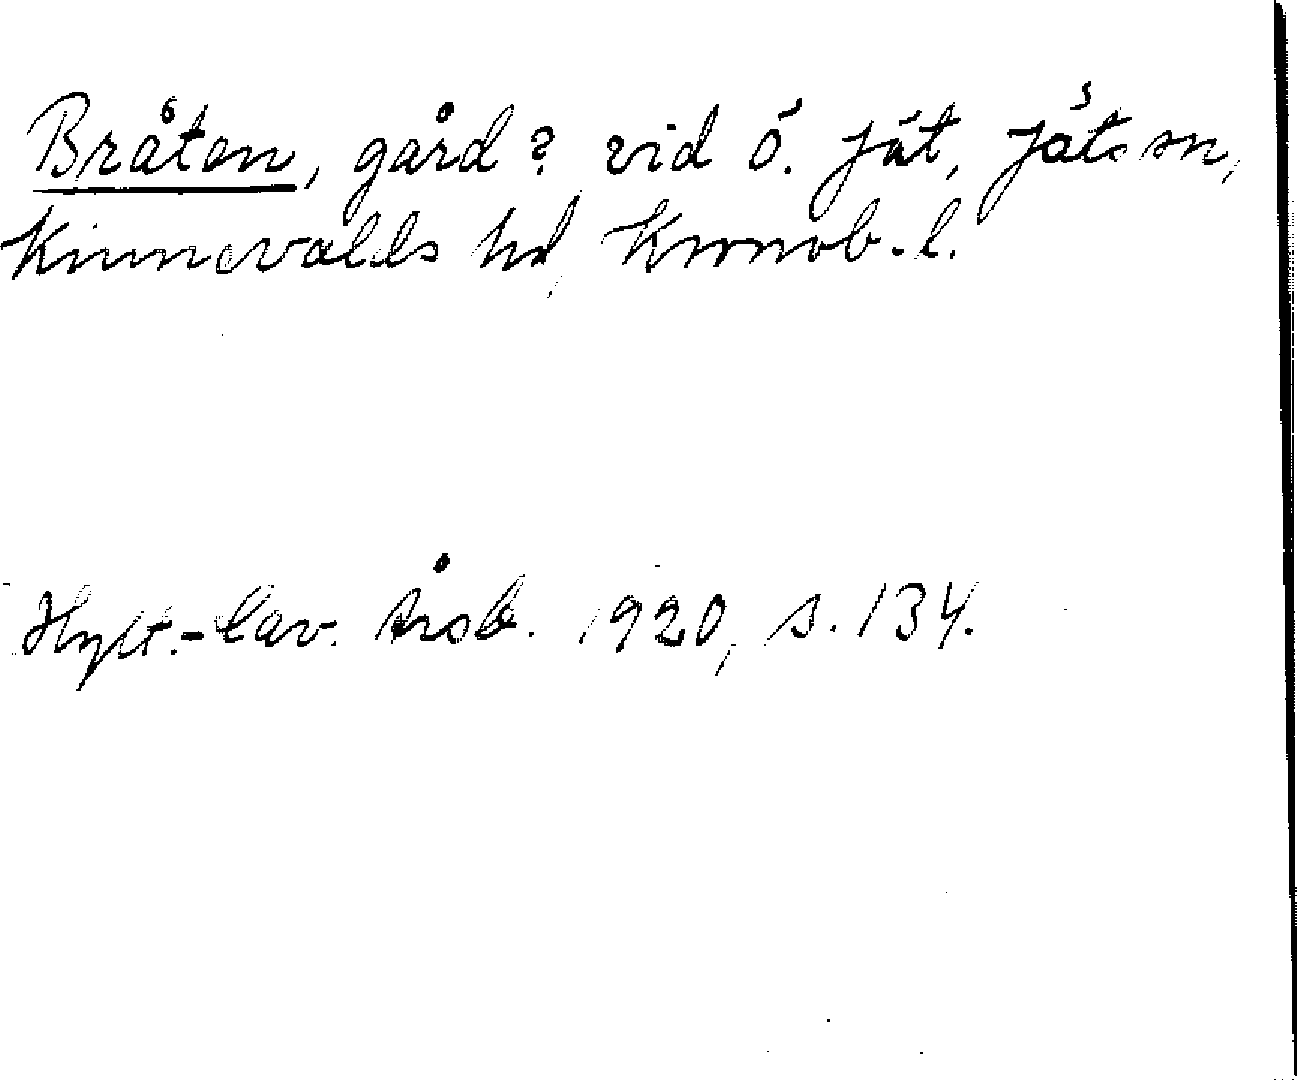 Bråten, gård? vid Ö. Jät, Jäts sn,
Kinnevalds hd, Kronob. l.
Hylt.-Cav. Årsb. 1920, s. 134.